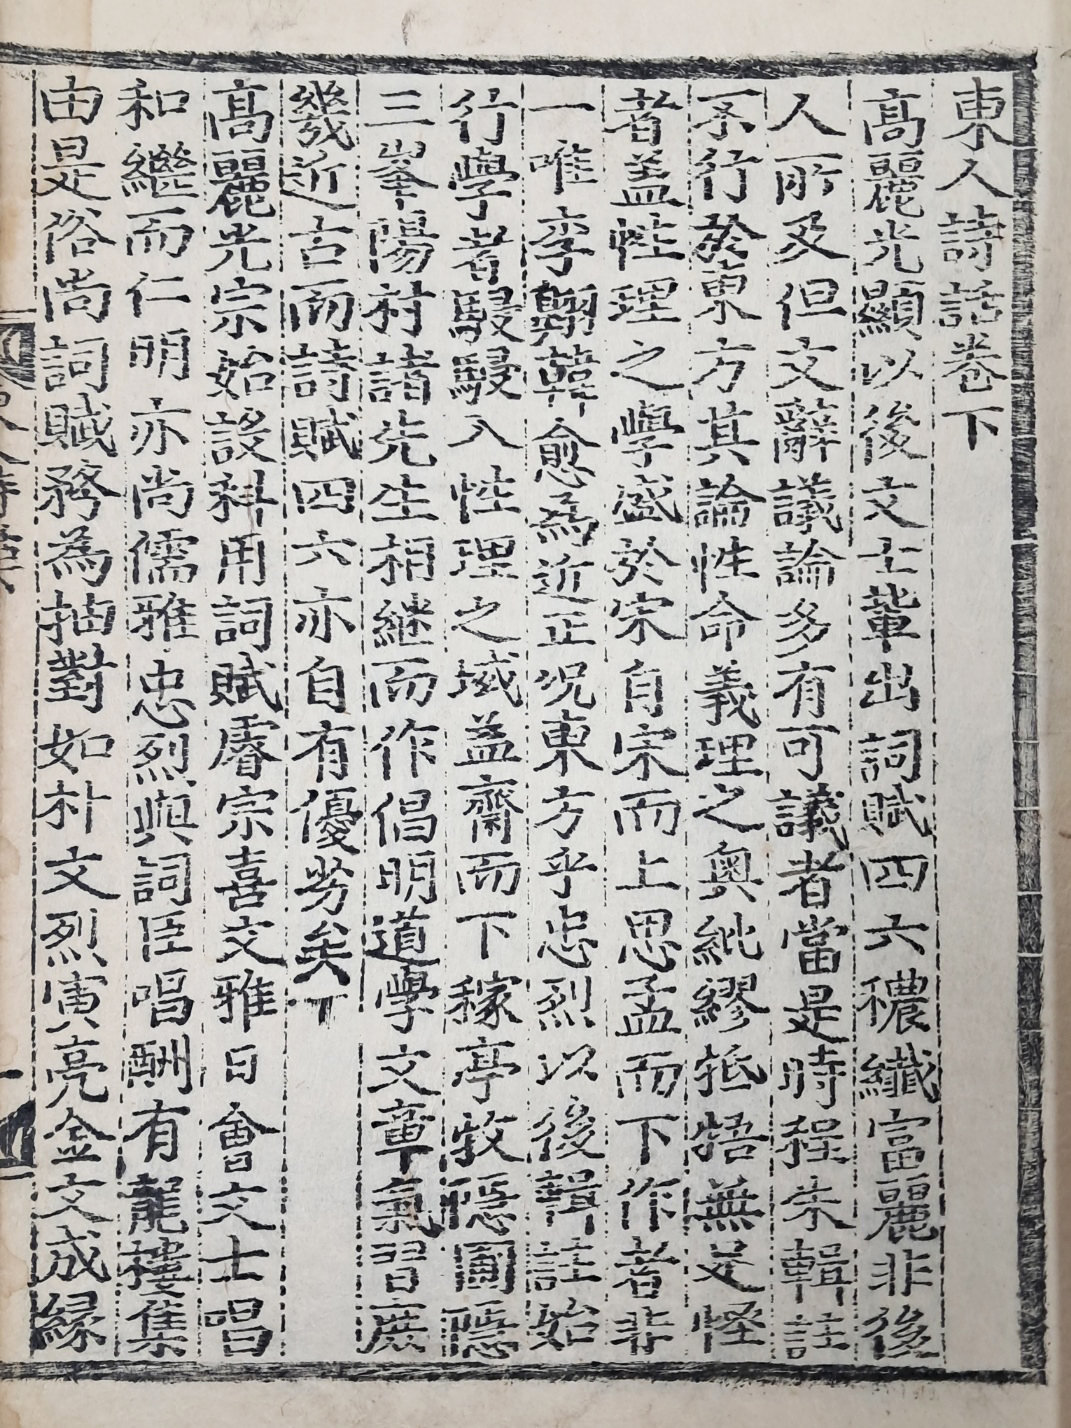 東人詩話卷下
高麗光顯以後文士輩出詞賦四六穠纖富麗非後
人所及但文辭議論多有可議者當是時程朱輯註
不行於東方其論性命義理之奧紕繆抵牾無足怪
者盖性理之學盛於宋自宋而上思孟而下作者非
一唯李翶韓愈爲近正况東方乎忠烈以後輯註始
行學者駸駸入性理之域益齋而下稼亭牧隱圃隱
三峯陽村諸先生相継而作倡明道學文章氣習庶
幾近古而詩賦四六亦自有優劣矣
高麗光宗始設科用詞賦睿宗喜文雅日會文士唱
和繼而仁明亦尚儒雅忠烈與詞臣唱酬有龍樓集
由是俗尚詞賦務為抽對如朴文烈寅亮金文成縁